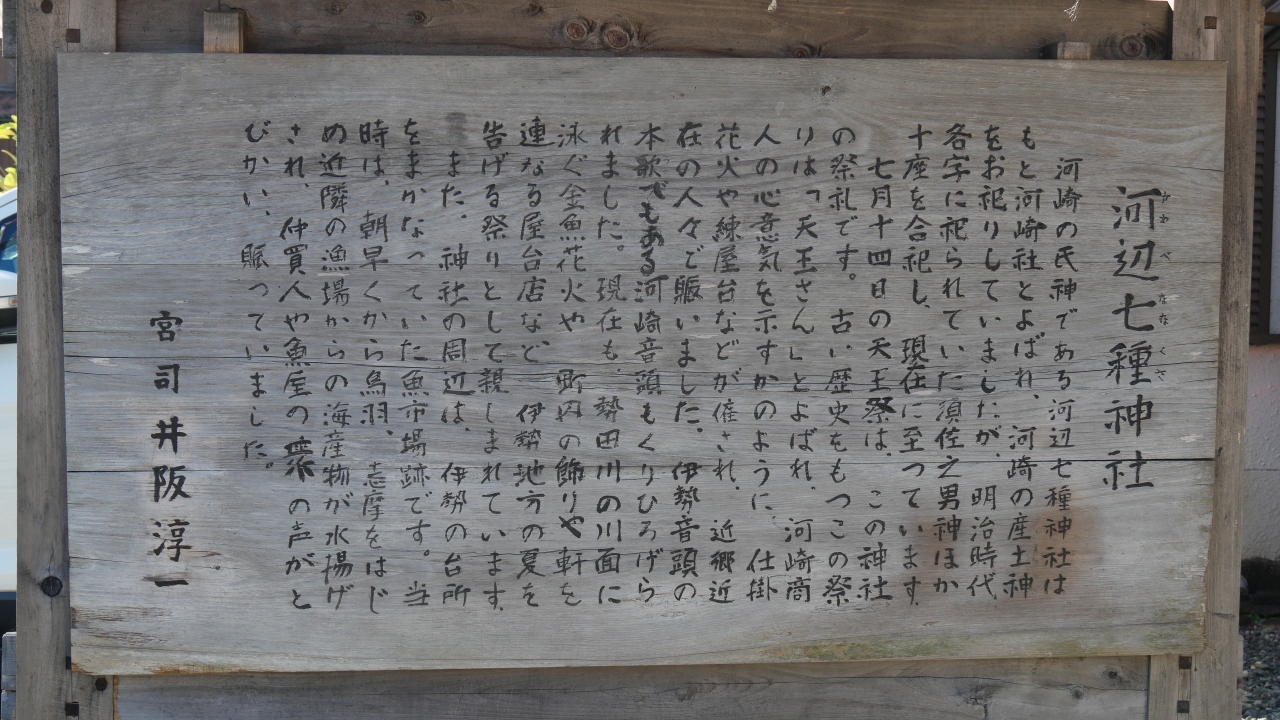 河辺七種神社
かわべななくさ
河崎の氏神である河辺七種神社は
もと河崎社とよばれ、河崎の産土神
をお祀りしていましたが、明治時代、
各字に祀られていた須佐之男神ほか
十座を合祀し、現在に至っています。
七月十四日の天王祭は、この神社
の祭礼です。古い歴史をもつこの祭
りは「天王さん」とよばれ、河崎商
人の心意気を示すかのように、仕掛
花火や練屋台などが催され、近郷近
在の人々で賑いました。伊勢音頭の
本歌でもある河崎音頭もくりひろげら
れました。現在も、勢田川の川面に
泳ぐ金魚花火や、町内の飾りや軒を
連なる屋台店など、伊勢地方の夏を
告げる祭りとして親しまれています。
また、神社の周辺は、伊勢の台所
をまかなっていた魚市場跡です。当
時は、朝早くから鳥羽、志摩をはじ
め近隣の漁場からの海産物が水揚げ
され、仲買人や魚屋の衆の声がと
びかい、賑っていました。
宮司井阪淳一